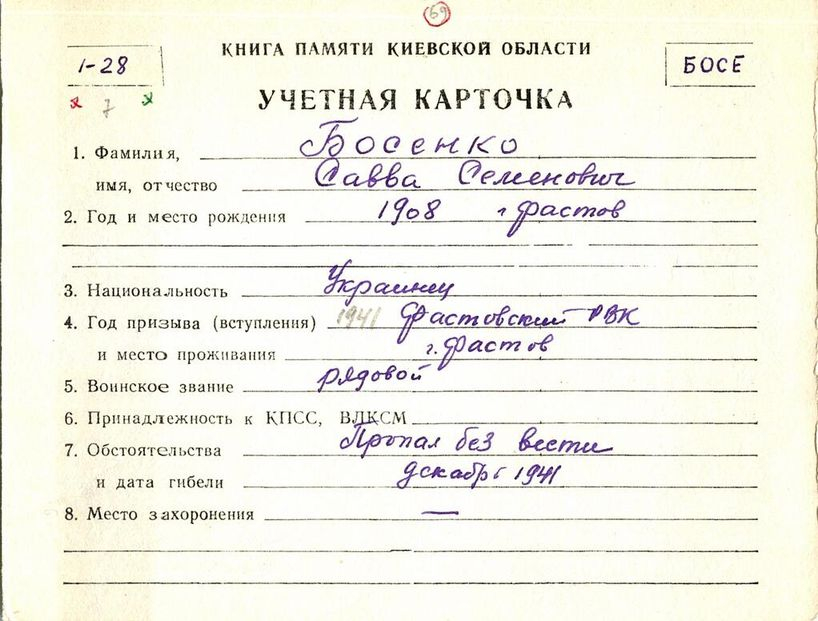 69
КНИГА ПАМЯТИ КИЕВСКОЙ ОБЛАСТИ
1-28
БОСЕ
7
УЧЕТНАЯ КАРТОЧКА
1. Фамилия, Босенко
имя, отчество Савва Семенович
2. Год и место рождения 1908 г Фастов
3. Национальность Украинец
4. Год призыва (вступления) 1941 Фастовский РВК
и место проживания г. Фастов
5. Воинское звание рядовой
6. Принадлежность к КПСС, ВЛКСМ
7. Обстоятельства Пропал без вести
и дата гибели декабрь 1941
8. Место захоронения —